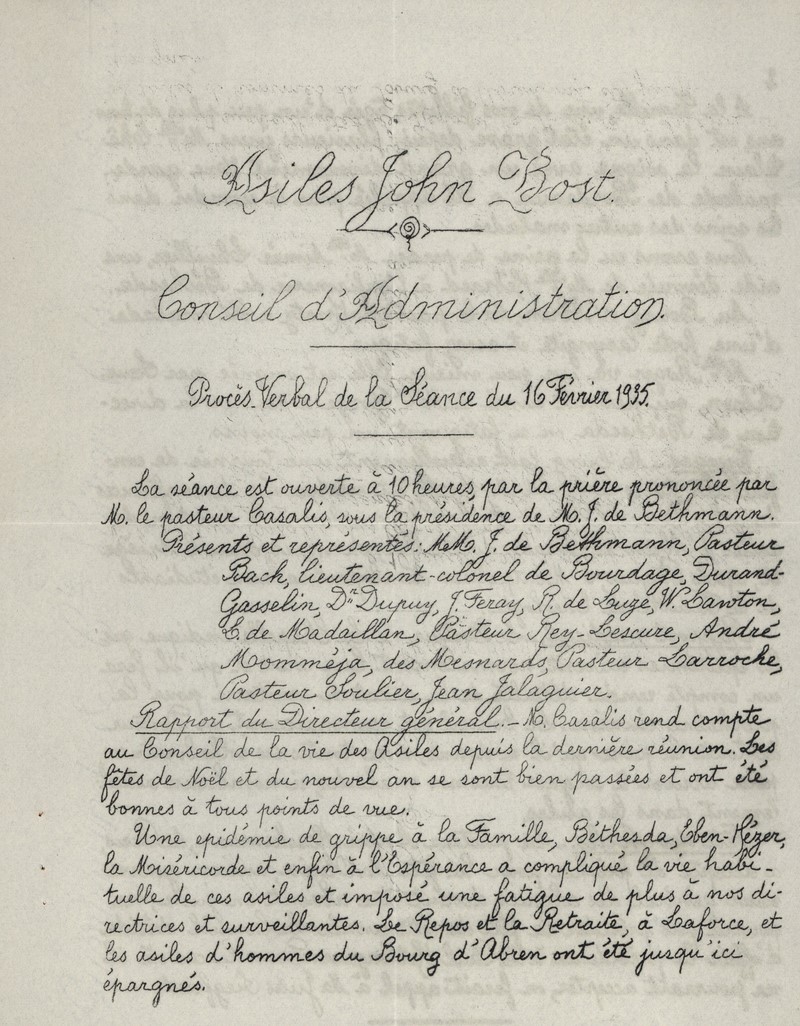 Asiles John Bost.
Conseil d'Administration.
Procès-Verbal de la Séance du 16 Février 1935.
La séance est ouverte à 10 heures, par la prière prononcée par
M. le pasteur Casalis, sous la présidence de M. J. de Bethmann.
Présents et représentés: MM. J. de Bethmann, Pasteur
Bach, lieutenant-colonel de Bourdage, Durand-
Gasselin, Dr Dupuy, J. Feray, R. de Luze, W. Lawton,
E. de Madaillan, Pasteur Rey-Lescure, André
Momméja, des Mesnards, Pasteur Larroche,
Pasteur Soulier, Jean Jalaguier.
Rapport du Directeur général. - M. Casalis rend compte
au Conseil de la vie des Asiles depuis la dernière réunion. Les
fêtes de Noël et du nouvel an se sont bien passées et ont été
bonnes à tous points de vue.
Une epidémie de grippe à la Famille, Béthesda, Eben-Hézer,
la Miséricorde et enfin à l'Espérance a compliqué la vie habi-
tuelle de ces asiles et imposé une fatigue de plus à nos di-
rectrices et surveillantes. Le Repos et la Retraite, à Laforce, et
les asiles d'hommes du Bourg d'Abren ont été jusqu'ici
épargnés.